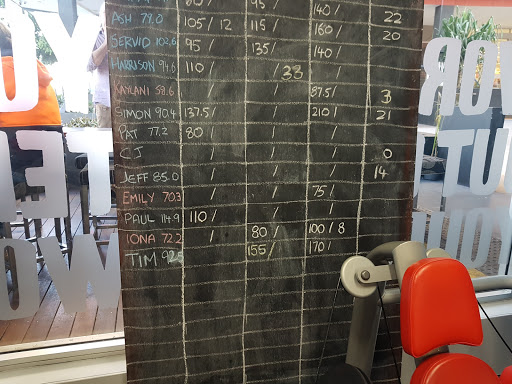 ASH 79.0 105/ 12 115/ 160/ 22
SERVID 102.6 95/ 135/ 140/ 20
HARRISON 94.6 110/ /33 /
KAYLANI 58.6 / / 87.5/ 3
SIMON 90.4 137.5/ / 210/ 21
PAT 77.2 80/ / /
CJ / / / 0
JEFF 85.0 / / / 14
EMILY 70.3 / / 75/
PAUL 114.9 110/ / /
IONA 72.2 / 80/ 100/ 8
TIM 92.5 155/ 170/